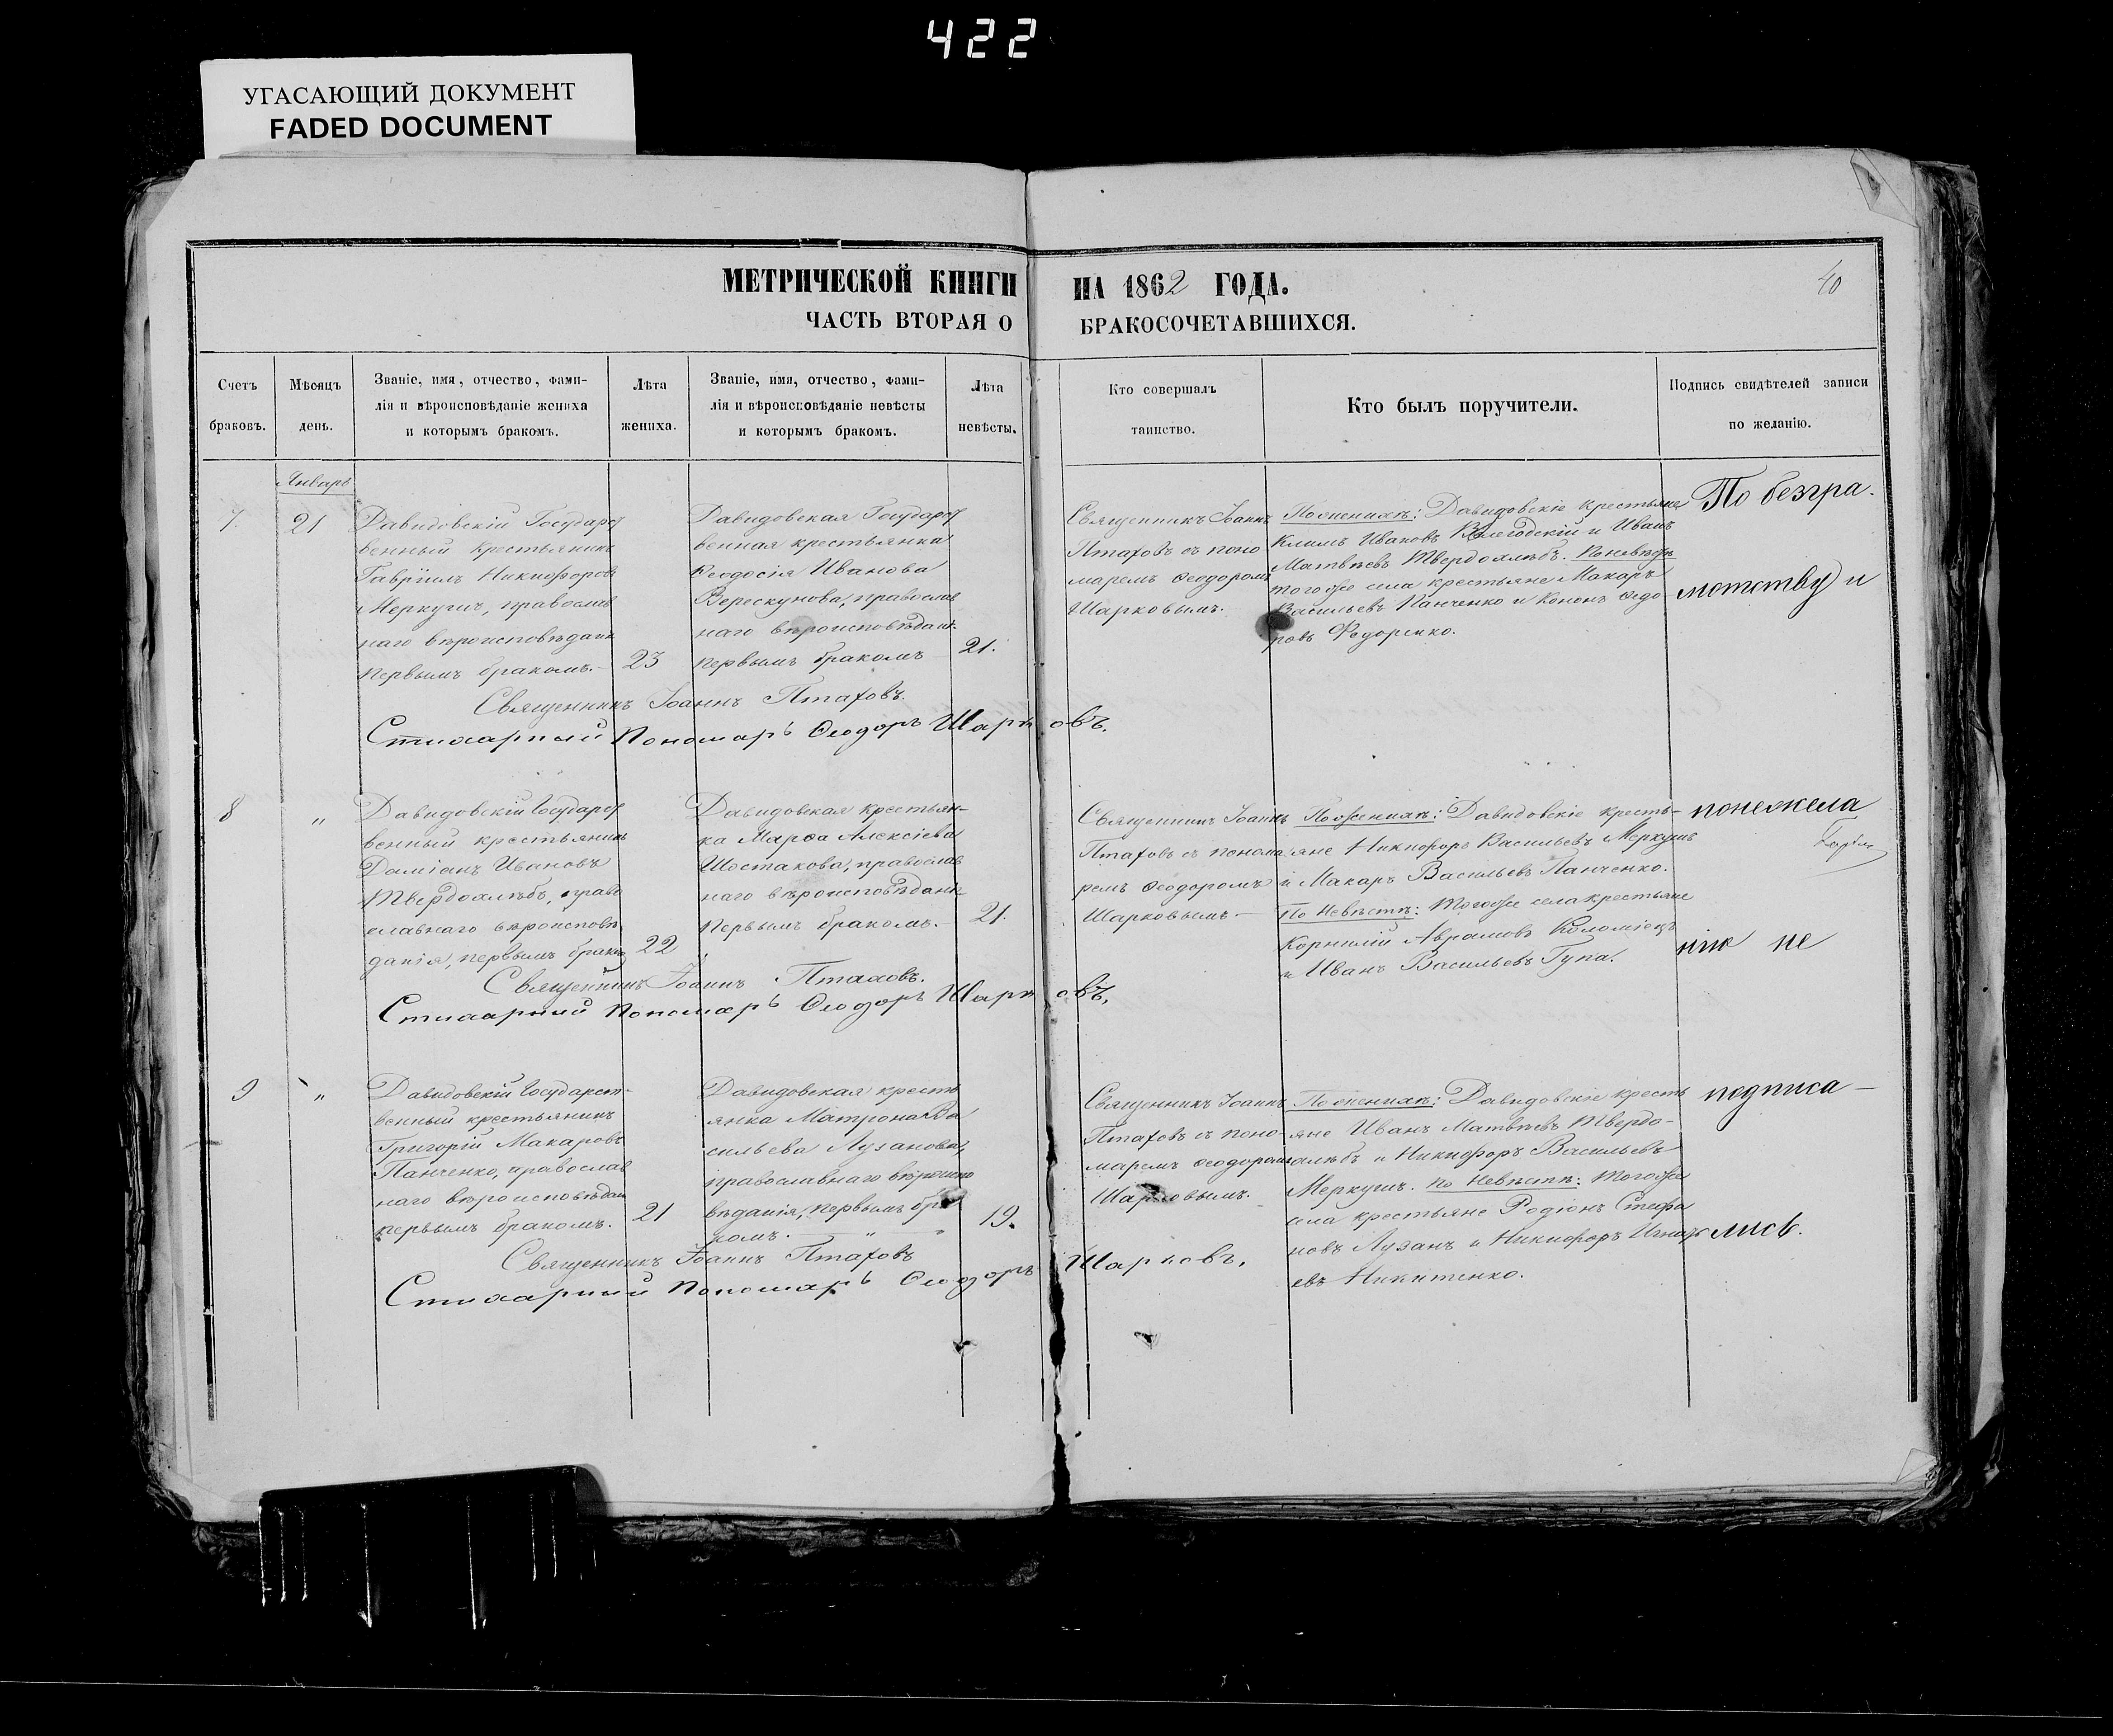 422
УГАСАЮЩИЙ ДОКУМЕНТ
FADED DOCUMENT
МЕТРИЧЕСКОЙ КНИГИ НА 1862 ГОДА.
40
ЧАСТЬ ВТОРАЯ О БРАКОСОЧЕТАВШИХСЯ.
Счетъ
браковъ.
Мѣсяцъ
день.
Званіе, имя, отчество, фами-
лія и вѣроисповѣданіе жениха
и которымъ бракомъ.
Лѣта
жениха.
Званіе, имя, отчество, фами-
лія и вѣроисповѣданіе невѣсты
и которымъ бракомъ.
Лѣта
невѣсты.
Кто совершалъ
таинство.
Кто былъ поручители.
Подпись свидѣтелей записи
по желанію.
Январь
7.
21
Давидовскій Государст
венный крестьянинъ
Гавріилъ Никифоровъ
Меркушъ, православ
наго вѣроисповѣдан
первымъ бракомъ.
23
Давидовская Государст
венная крестьянка
Ѳеодосія Иванова
Верескунова, православ
наго вѣроисповѣдан.
первымъ бракомъ
21.
Священникъ Іоаннъ
Птаховъ съ поно
маремъ Ѳеодоромъ
Шарковымъ.
По женихѣ: Давидовскіе крестьяне
Климъ Ивановъ Вологодскій и Иванъ
Матвѣевъ Твердохлѣбъ. По невѣстѣ
тогоже села крестьяне Макаръ
Васильевъ Панченко и Кононъ Ѳедо-
ровъ Федоренко.
По безгра-
мотству и
Священникъ Іоаннъ Птаховъ.
Стихарный Пономарь Ѳеодоръ Шарковъ.
8
"
Давидовскій Государст
венный крестьянинъ
Даміанъ Ивановъ
Твердохлѣбъ, право
славнаго вѣроисповѣ
данія, первымъ брако
22
Давидовская крестьян-
ка Марѳа Алексіева
Шостакова, православ
наго вѣроисповѣдан
первымъ бракомъ.
21.
Священникъ Іоаннъ
Птаховъ съ понома
ремъ Ѳеодоромъ
Шарковымъ
По женихѣ: Давидовскіе кресть-
яне Никифоръ Васильевъ Меркушъ
и Макаръ Васильевъ Панченко.
По невѣстѣ: тогоже села крестьяне
Корнилій Аврамовъ Коломіецъ
и Иванъ Васильевъ Гупа.
понежела
нію не
Священникъ Іоаннъ Птаховъ.
Стихарный Пономарь Ѳеодоръ Шарковъ.
9
"
Давидовскій Государст-
венный крестьянинъ
Григорій Макаровъ
Панченко, православ
наго вѣроисповѣдан
первымъ бракомъ.
21
Давидовская кресть
янка Матрона Ва
сильева Лузанова,
православнаго вѣроиспо
вѣданія, первымъ бра
комъ.
19.
Священникъ Іоаннъ
Птаховъ съ поно
маремъ Ѳеодоромъ
Шарковымъ.
По женихѣ: Давидовскіе кресть
яне Иванъ Матвѣевъ Твердо-
хлѣбъ и Никифоръ Васильевъ
Меркушъ. По невѣстѣ: тогоже
села крестьяне Родіонъ Стефа
новъ Лузанъ и Никифоръ Игнать
евъ Никитенко.
подписа-
лись.
Священникъ Іоаннъ Птаховъ
Стихарный Пономарь Ѳеодоръ Шарковъ.